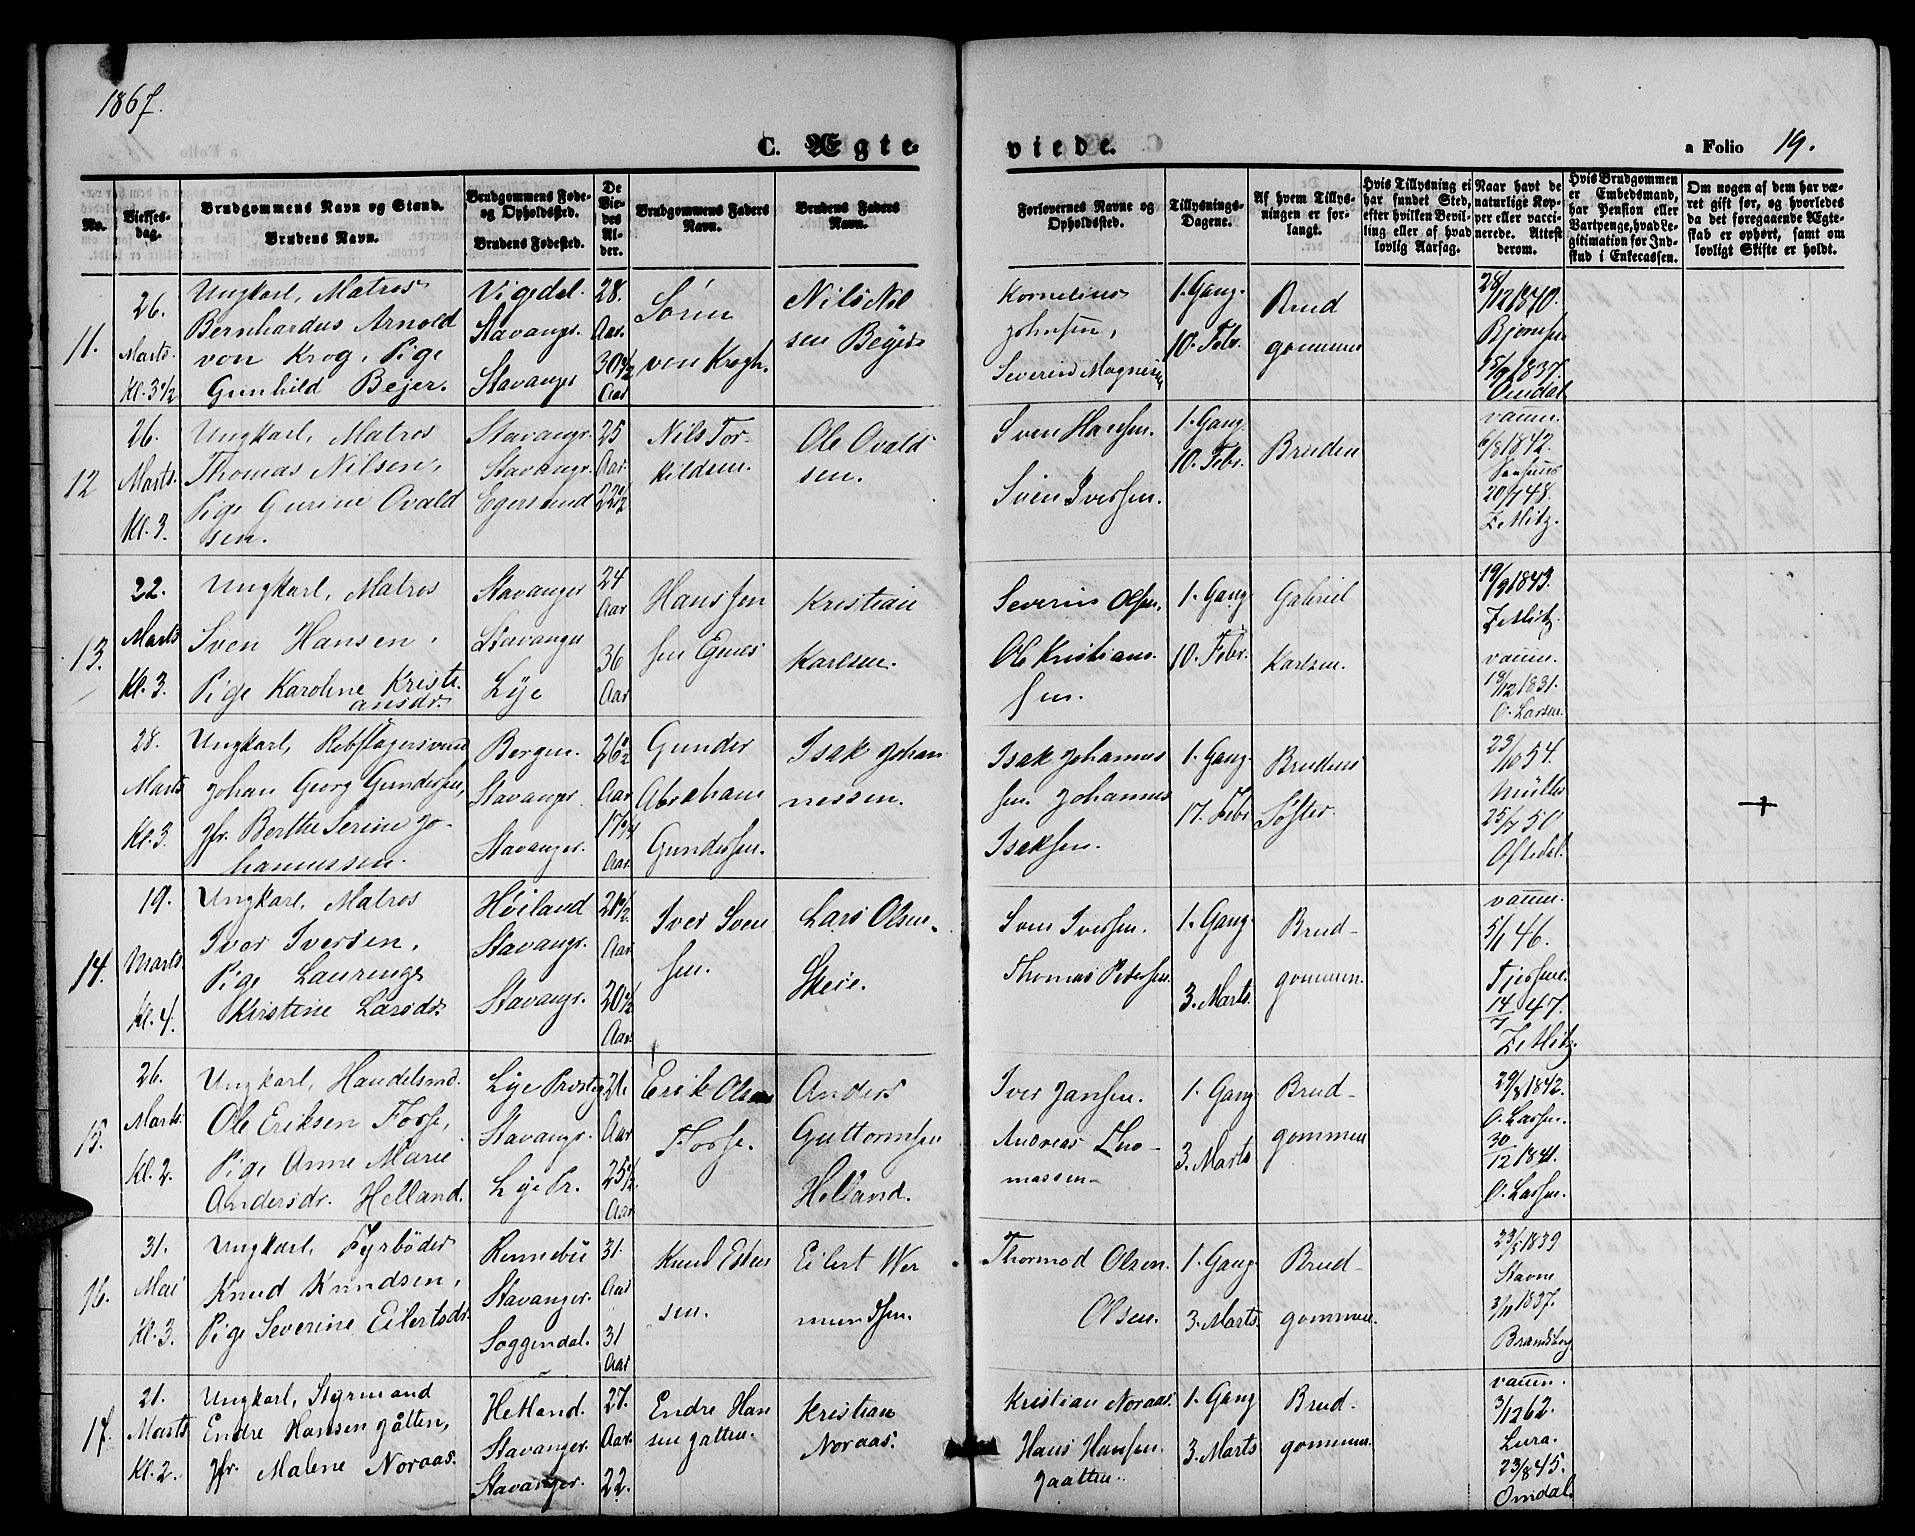 1867.
C. Ægte-
viede.
a Folio 19.
No.
Vielses-
dag.
Brudgommens Navn og Stand.
Brudens Navn.
Brudgommens Føde-
og Opholdsted.
Brudens Fødested.
De
Vie-
des
Al-
der.
Brudgommens Faders
Navn.
Brudens Faders
Navn.
Forlovernes Navne og
Opholdsted.
Tillysnings-
Dagene.
Af hvem Tillys-
ningen er for-
langt.
Hvis Tillysning ei
har fundet Sted,
efter hvilken Bevil-
ling eller af hvad
lovlig Aarsag.
Naar havt de
naturlige Kop-
per eller vacci-
nerede. Attest
derom.
Hvis Brudgommen
er Embedsmand,
har Pension eller
Vartpenge, hvad Le-
gitimation for Ind-
skud i Enkecassen.
Om nogen af dem har væ-
ret gift før, og hvorledes
da det foregaaende Ægte-
skab er ophørt, samt om
lovligt Skifte er holdt.
11.
26.
Marts.
Kl. 3½
Ungkarl, Matros
Bernhardus Arnold
von Krog, Pige
Gunhild Bejer.
Vigedal.
Stavangr.
Stavangr
28.
Aar.
30½
Aar
Sören
von Krogh.
Nils Nil
sen Beyer
Kornelius
Johnsen,
Severin Magnesen
1. Gang.
10. Febr.
Brud
gommen
28/12 1840.
15/9 1837.
Omdal.
12
26.
Marts.
Kl. 3.
Ungkarl, Matros
Thomas Nilsen,
Pige Gurine Ovald
sen.
Stavangr.
Stavangr.
Egersund
25
Aar.
22½
Nils Tor-
kildsen.
Ole Ovald
sen.
Sven Hansen.
Sven Iversen.
1. Gang.
10. Febr.
Bruden
vaccin.
6/8 1842.
20/7 48.
Zetlitz.
13.
22.
Marts
Kl. 3.
Ungkarl, Matros
Sven Hansen,
Pige Karoline Kristi-
ansdr.
Stavanger
Stavanger
Lye
24
Aar
36
Aar
Hans Jen
sen Egenes
Kristian
Karlsen.
Severin Olsen.
Ole Kristian-
sen.
1. Gang
10. Febr.
Gabriel
Karlsen.
19/9 1843.
Zetlitz.
vaccin.
18/12 1831.
O. Larsen.
28.
Marts
Kl. 3
Ungkarl, Rebslagersvend
Johan Georg Gundersen,
Jfr. Berthe Serine Jo-
hannessen.
Bergen.
Stavanger
Stavanger.
26½
Aar
17¾
Aar.
Gunder
Abraham
Gundersen.
Isak Johan
nessen.
Isak Johannes
sen. Johannes
Isaksen.
1. Gang.
17. Febr.
Brudens
Søster
23/10 54.
Müller
25/7 50
Oftedal.
14.
19.
Marts.
Kl. 4.
Ungkarl, Matros
Iver Iversen,
Pige Lauringe
Kirstine Larsdr.
Høiland
Stavangr.
Stavangr.
21½.
Aar
20½
Aar.
Iver Sven
sen.
Lars Olsen
Skeie.
Sven Iversen.
Thomas Petersen.
1. Gang.
3. Marts.
Brud-
gommen.
vaccin.
5/1 46.
14/7 47.
Zetlitz.
15.
26.
Marts.
Kl. 2.
Ungkarl, Handelsmd.
Ole Eriksen Fosse,
Pige Anne Marie
Andersdr. Helland.
Lye Presteg
Stavangr.
Lye Pr.
21.
Aar
25½
Aar
Erik Olsen
Fosse.
Anders
Guttormsen
Helland.
Iver Jansen.
Andreas Tho-
massen-
1. Gang
3. Marts
Brud-
gommen
29/8 1842.
O. Larsen.
30/12 1841.
O. Larsen.
16.
31.
Mai
Kl. 3.
Ungkarl, Fyrbøder
Knud Knudsen,
Pige Severine Eilertsdr.
Rennebu
Stavanger.
Soggendal.
31.
Aar
31
Aar
Knud Esten
sen.
Eilert Wer
mundsen.
Thormod Olsen.
Olsen.
1. Gang.
3. Marts
Brud-
gommen.
23/5 1839
Stavne
3/11 1837.
Bramsberg
17.
21.
Marts
Kl. 2.
Ungkarl, Styrmand
Endre Hansen gåtten,
Jfr. Malene Noraas.
Hetland.
Stavanger.
Stavanger.
27.
Aar.
22.
Endre Han
sen gatten.
Kristian
Noraas.
Kristian Noraas.
Hans Hansen
gaatten.
1. Gang
3. Marts
Brud-
gommen.
vaccin.
3/12 62.
Lura.
23/8 45.
Omdal.